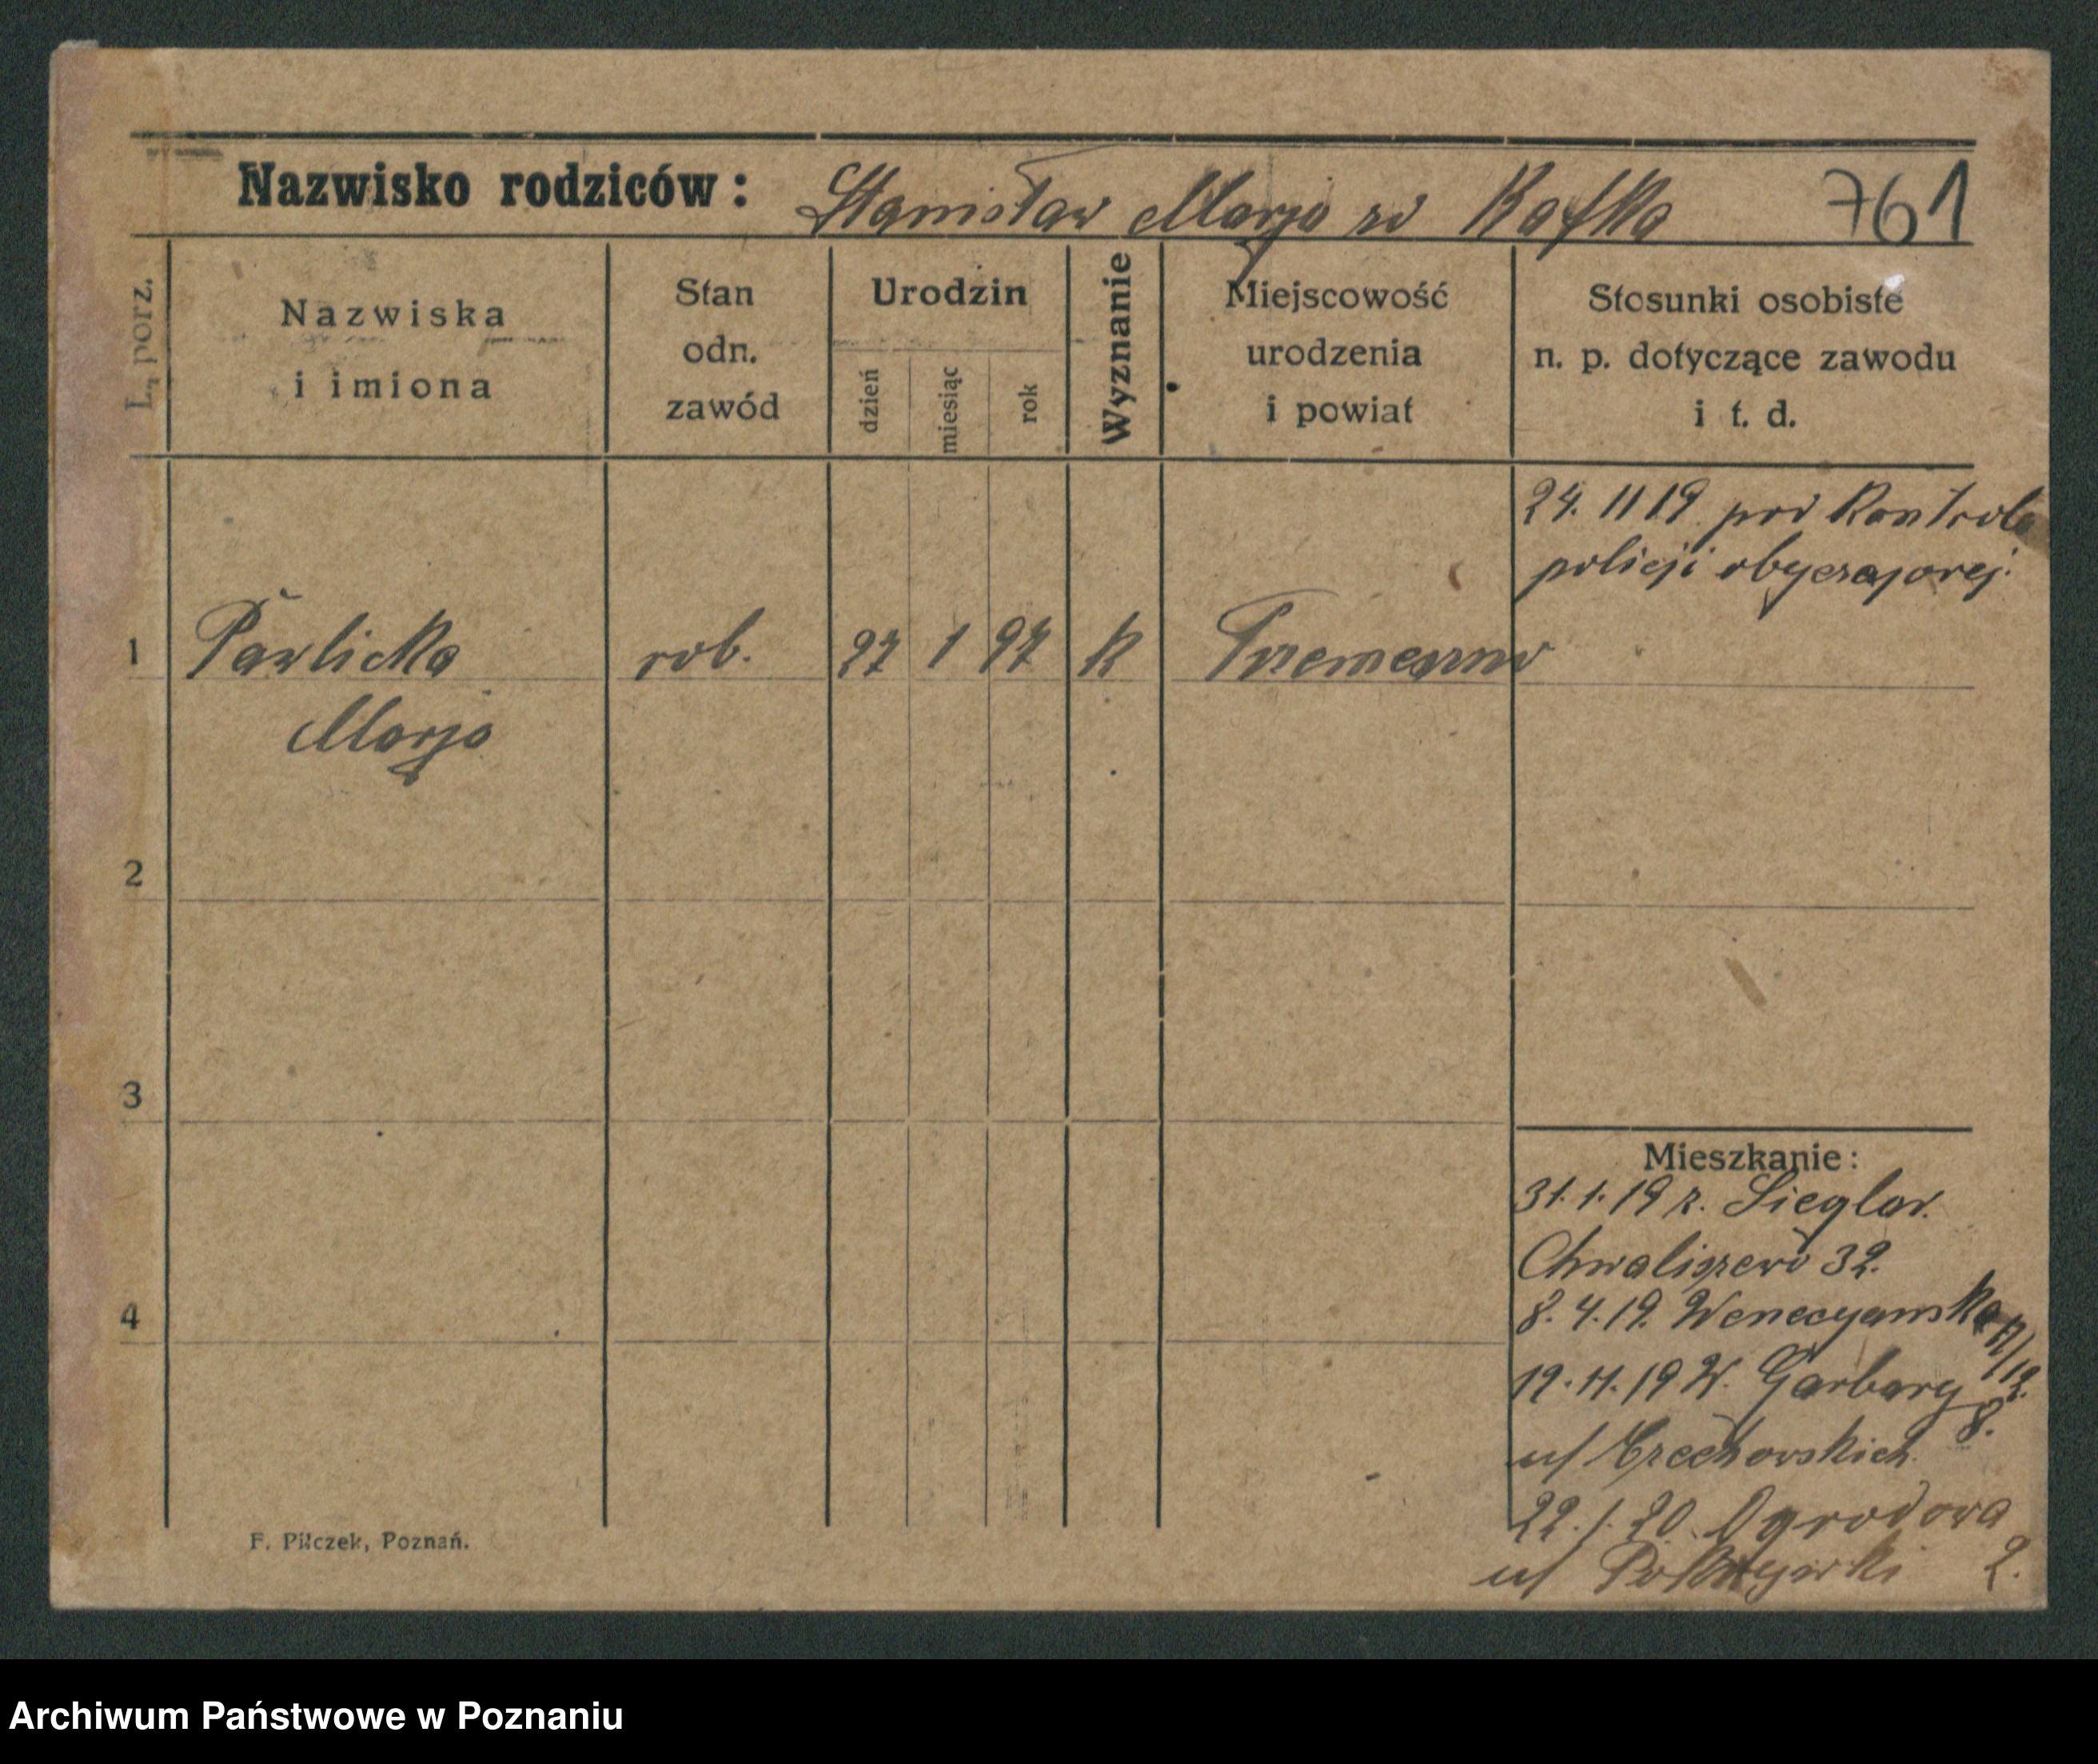 Nazwisko rodziców: Stanisław Marja zd Kafka 761
L. porz.
Nazwiska i imiona
Stan odn. zawód
Urodzin
dzień miesiąc rok
Wyznanie
Miejscowość urodzenia i powiat
Stosunki osobiste n. p. dotyczące zawodu i t. d.
24. 11 19 pod kontrolą
policji obyczajowej.
1 Pawlicka rob. 27 1 97 k Trzemeszno
Marja
2
3
4
Mieszkanie:
31. 1. 19 r. Sieglar.
Chwaliszewo 32.
8. 4. 19. Wenecyanska
19. 11. 19 W. Garbary 8.
u/ Grzechowskich
22. 1. 20. Ogrodowa 2.
u/
F. Pilczek, Poznań.
Archiwum Państwowe w Poznaniu